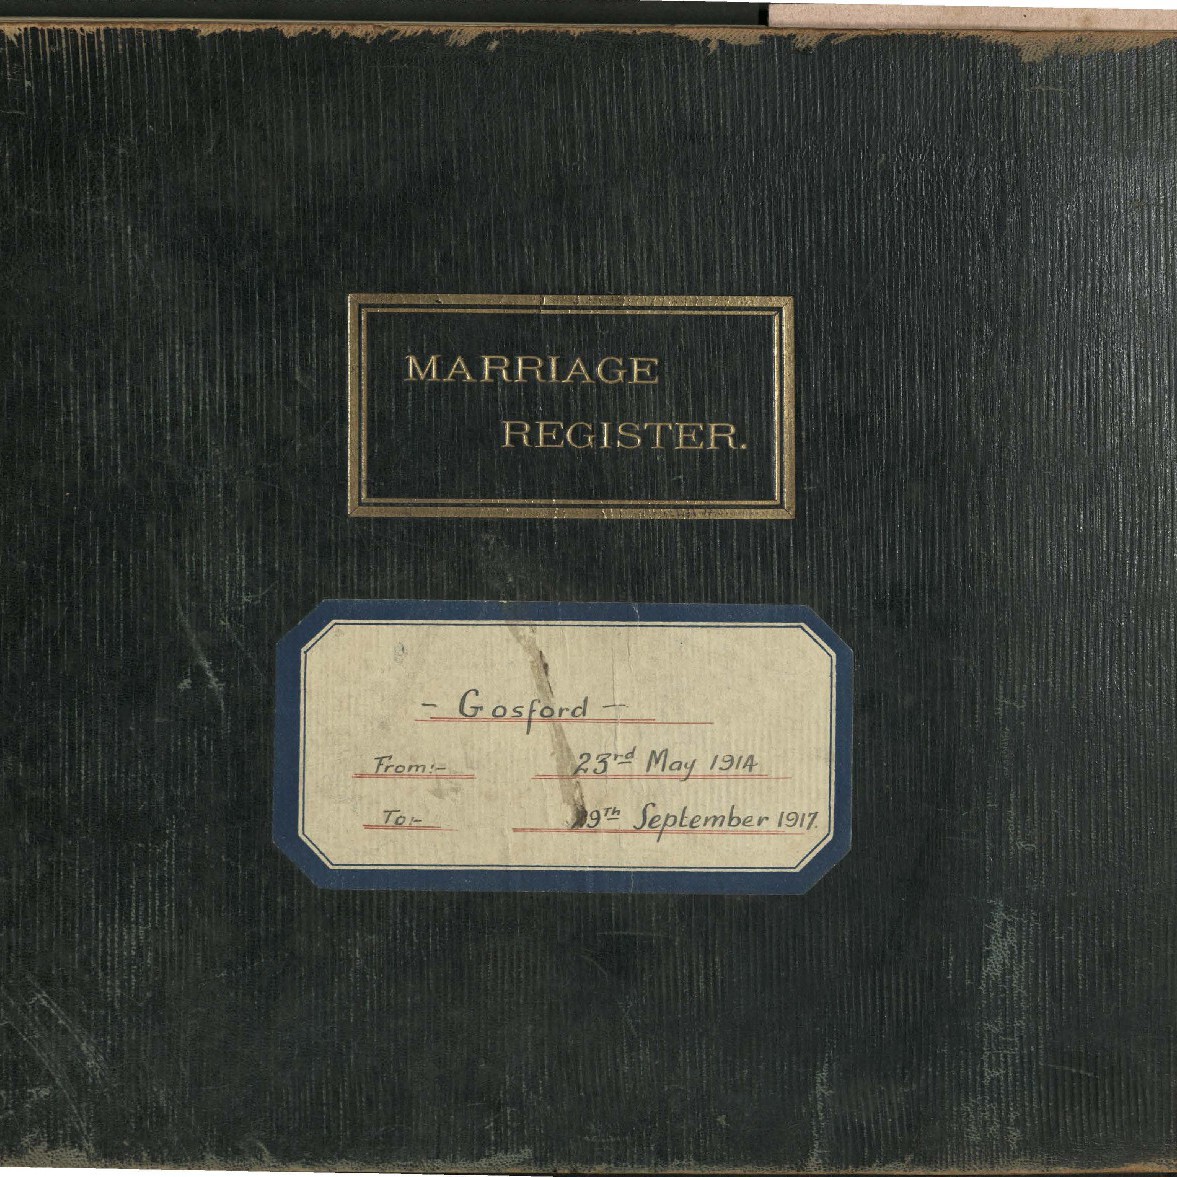 MARRIAGE
REGISTER.
- Gosford -
From:- 23rd May 1914
To:- September 1917.